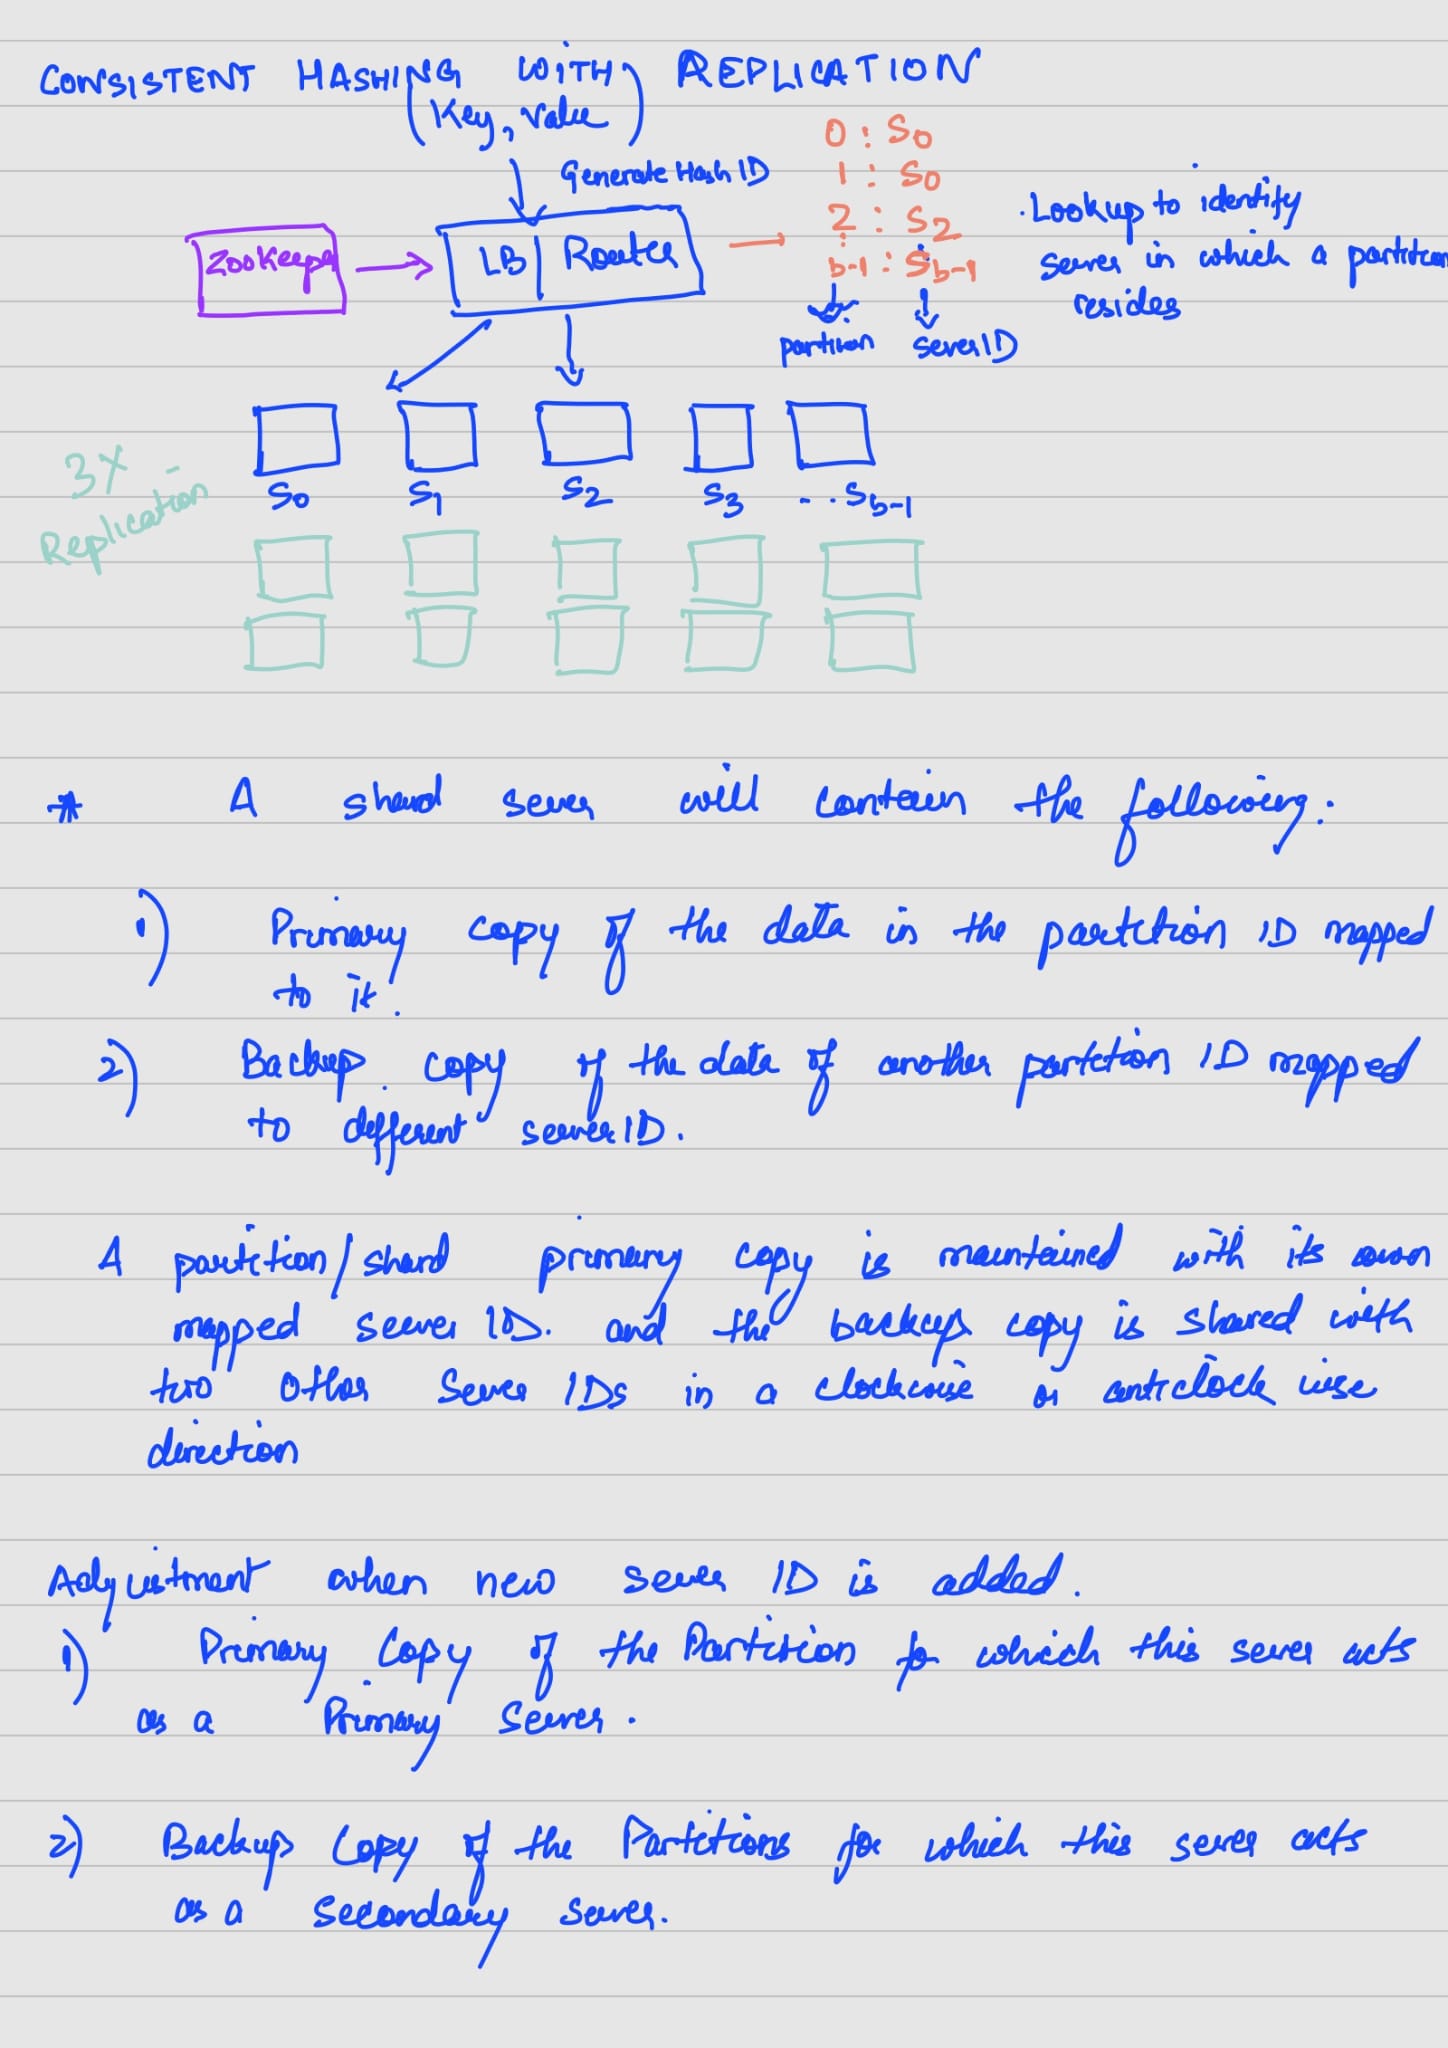 CONSISTENT HASHING WITH REPLICATION
(Key, Value)
Generate Hash ID
0 : S0
1 : S0
2 : S2
b-1 : Sb-1
Zookeeper
LB | Router
. Lookup to identify
server in which a partition
resides
partition serverID
3X
Replication
S0 S1 S2 S3 ... Sb-1
* A shard server will contain the following:
1) Primary copy of the data in the partition ID mapped
to it.
2) Backup copy of the data of another partition ID mapped
to different server ID.
A partition/shard primary copy is maintained with its own
mapped server ID. and the backup copy is shared with
two other Server IDs in a clockwise or anticlock wise
direction
Adjustment when new server ID is added.
1) Primary Copy of the Partition for which this server acts
as a Primary Server.
2) Backup Copy of the Partitions for which this server acts
as a Secondary Server.